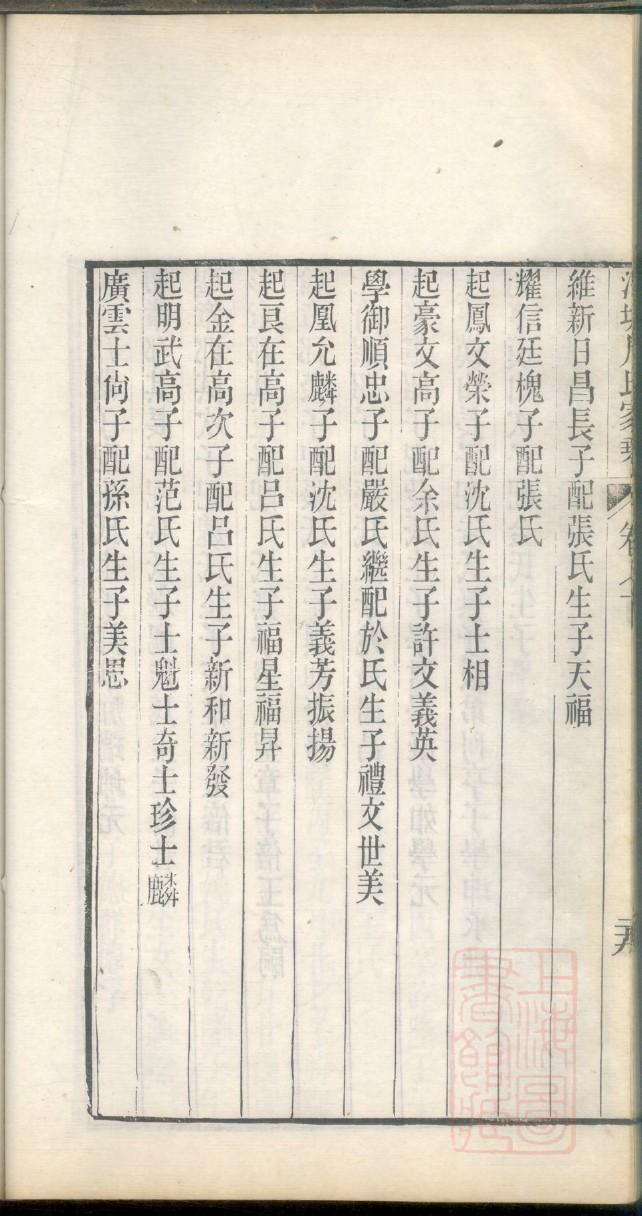 周氏家乘
維新日昌長子配張氏生子天福
耀信廷槐子配張氏
起鳳文榮子配沈氏生子士相
起豪文高子配余氏生子許文義英
學御順忠子配嚴氏繼配於氏生子禮文世美
起凰允麟子配沈氏生子義芳振揚
起良在高子配呂氏生子福星福昇
起金在高次子配呂氏生子新和新發
起明武高子配范氏生子士魁士奇士珍士麟
廣雲士尙子配孫氏生子美思
上海圖書館藏